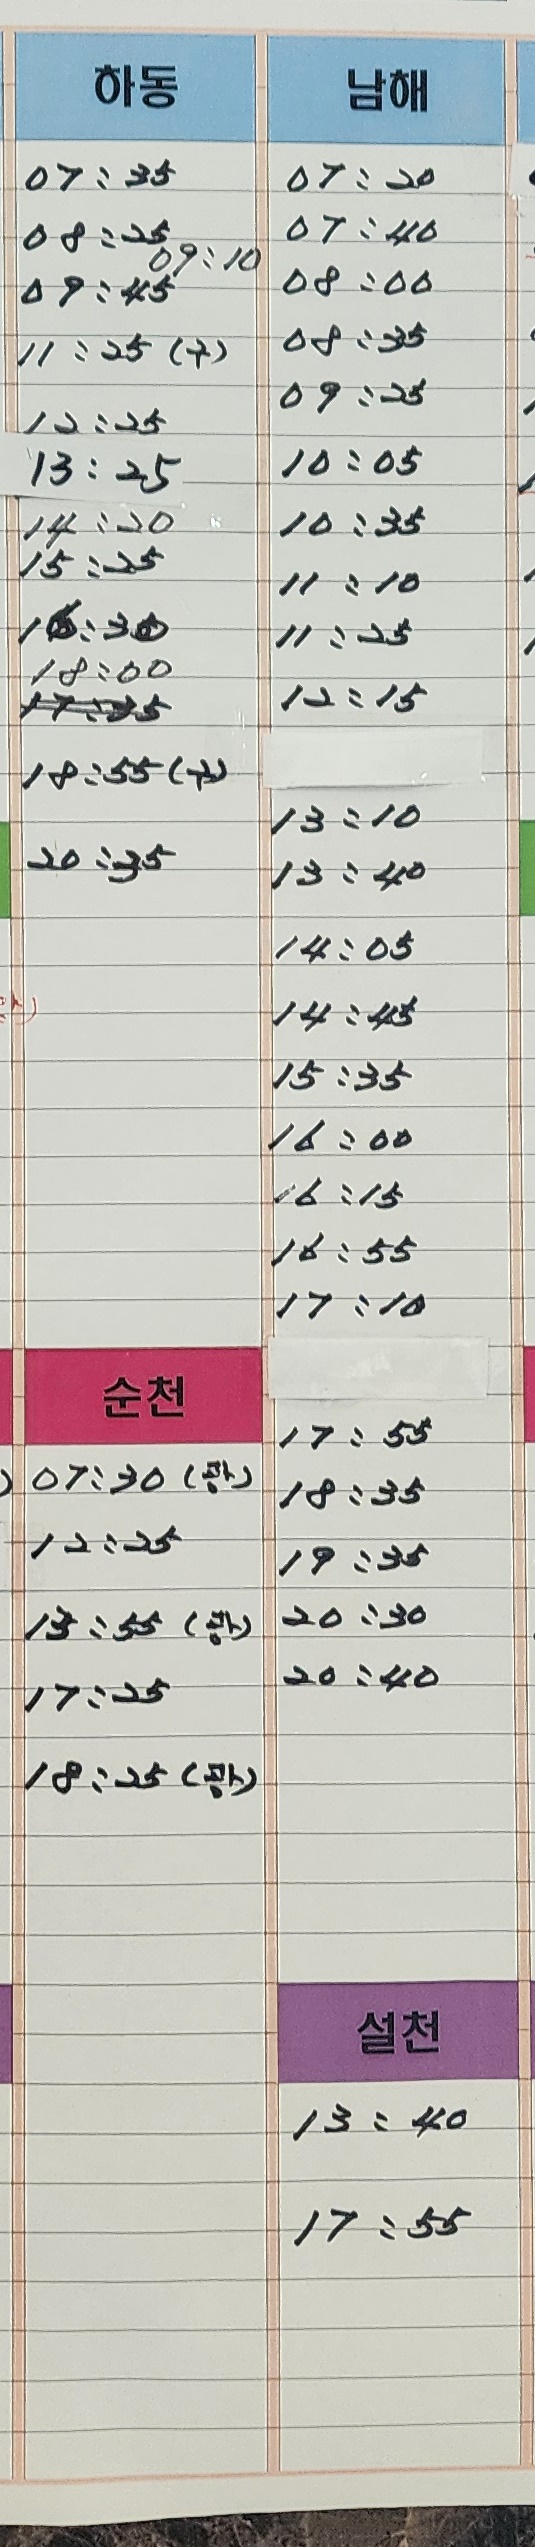 하동
07:35
08:25
09:10
09:45
11:25 (구)
12:25
13:25
14:20
15:25
18:00
17:35
18:55 (구)
20:35
순천
07:30 (광)
12:25
13:55 (광)
17:25
18:25 (광)
남해
07:20
07:40
08:00
08:35
09:25
10:05
10:35
11:10
11:25
12:15
13:10
13:40
14:05
14:45
15:35
16:00
16:15
16:55
17:10
17:55
18:35
19:35
20:30
20:40
설천
13:40
17:55